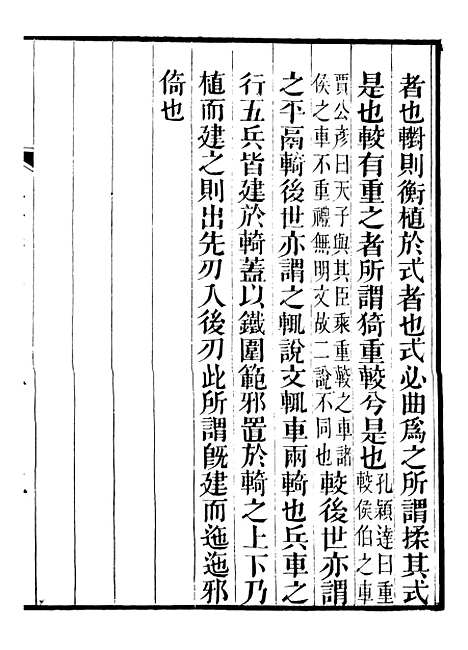 者也轛則衡植於式者也式必曲爲之所謂揉其式
是也較有重之者所謂猗重較兮是也孔穎達曰重較侯伯之車
賈公彥曰天子與其臣乘重較之車諸侯之車不重禮無明文故二說不同也較後世亦謂
之平鬲輢後世亦謂之輒說文輒車兩輢也兵車之
行五兵皆建於輢蓋以鐵圍範邪置於輢之上下乃
植而建之則出先刃入後刃此所謂旣建而迤迤邪
倚也